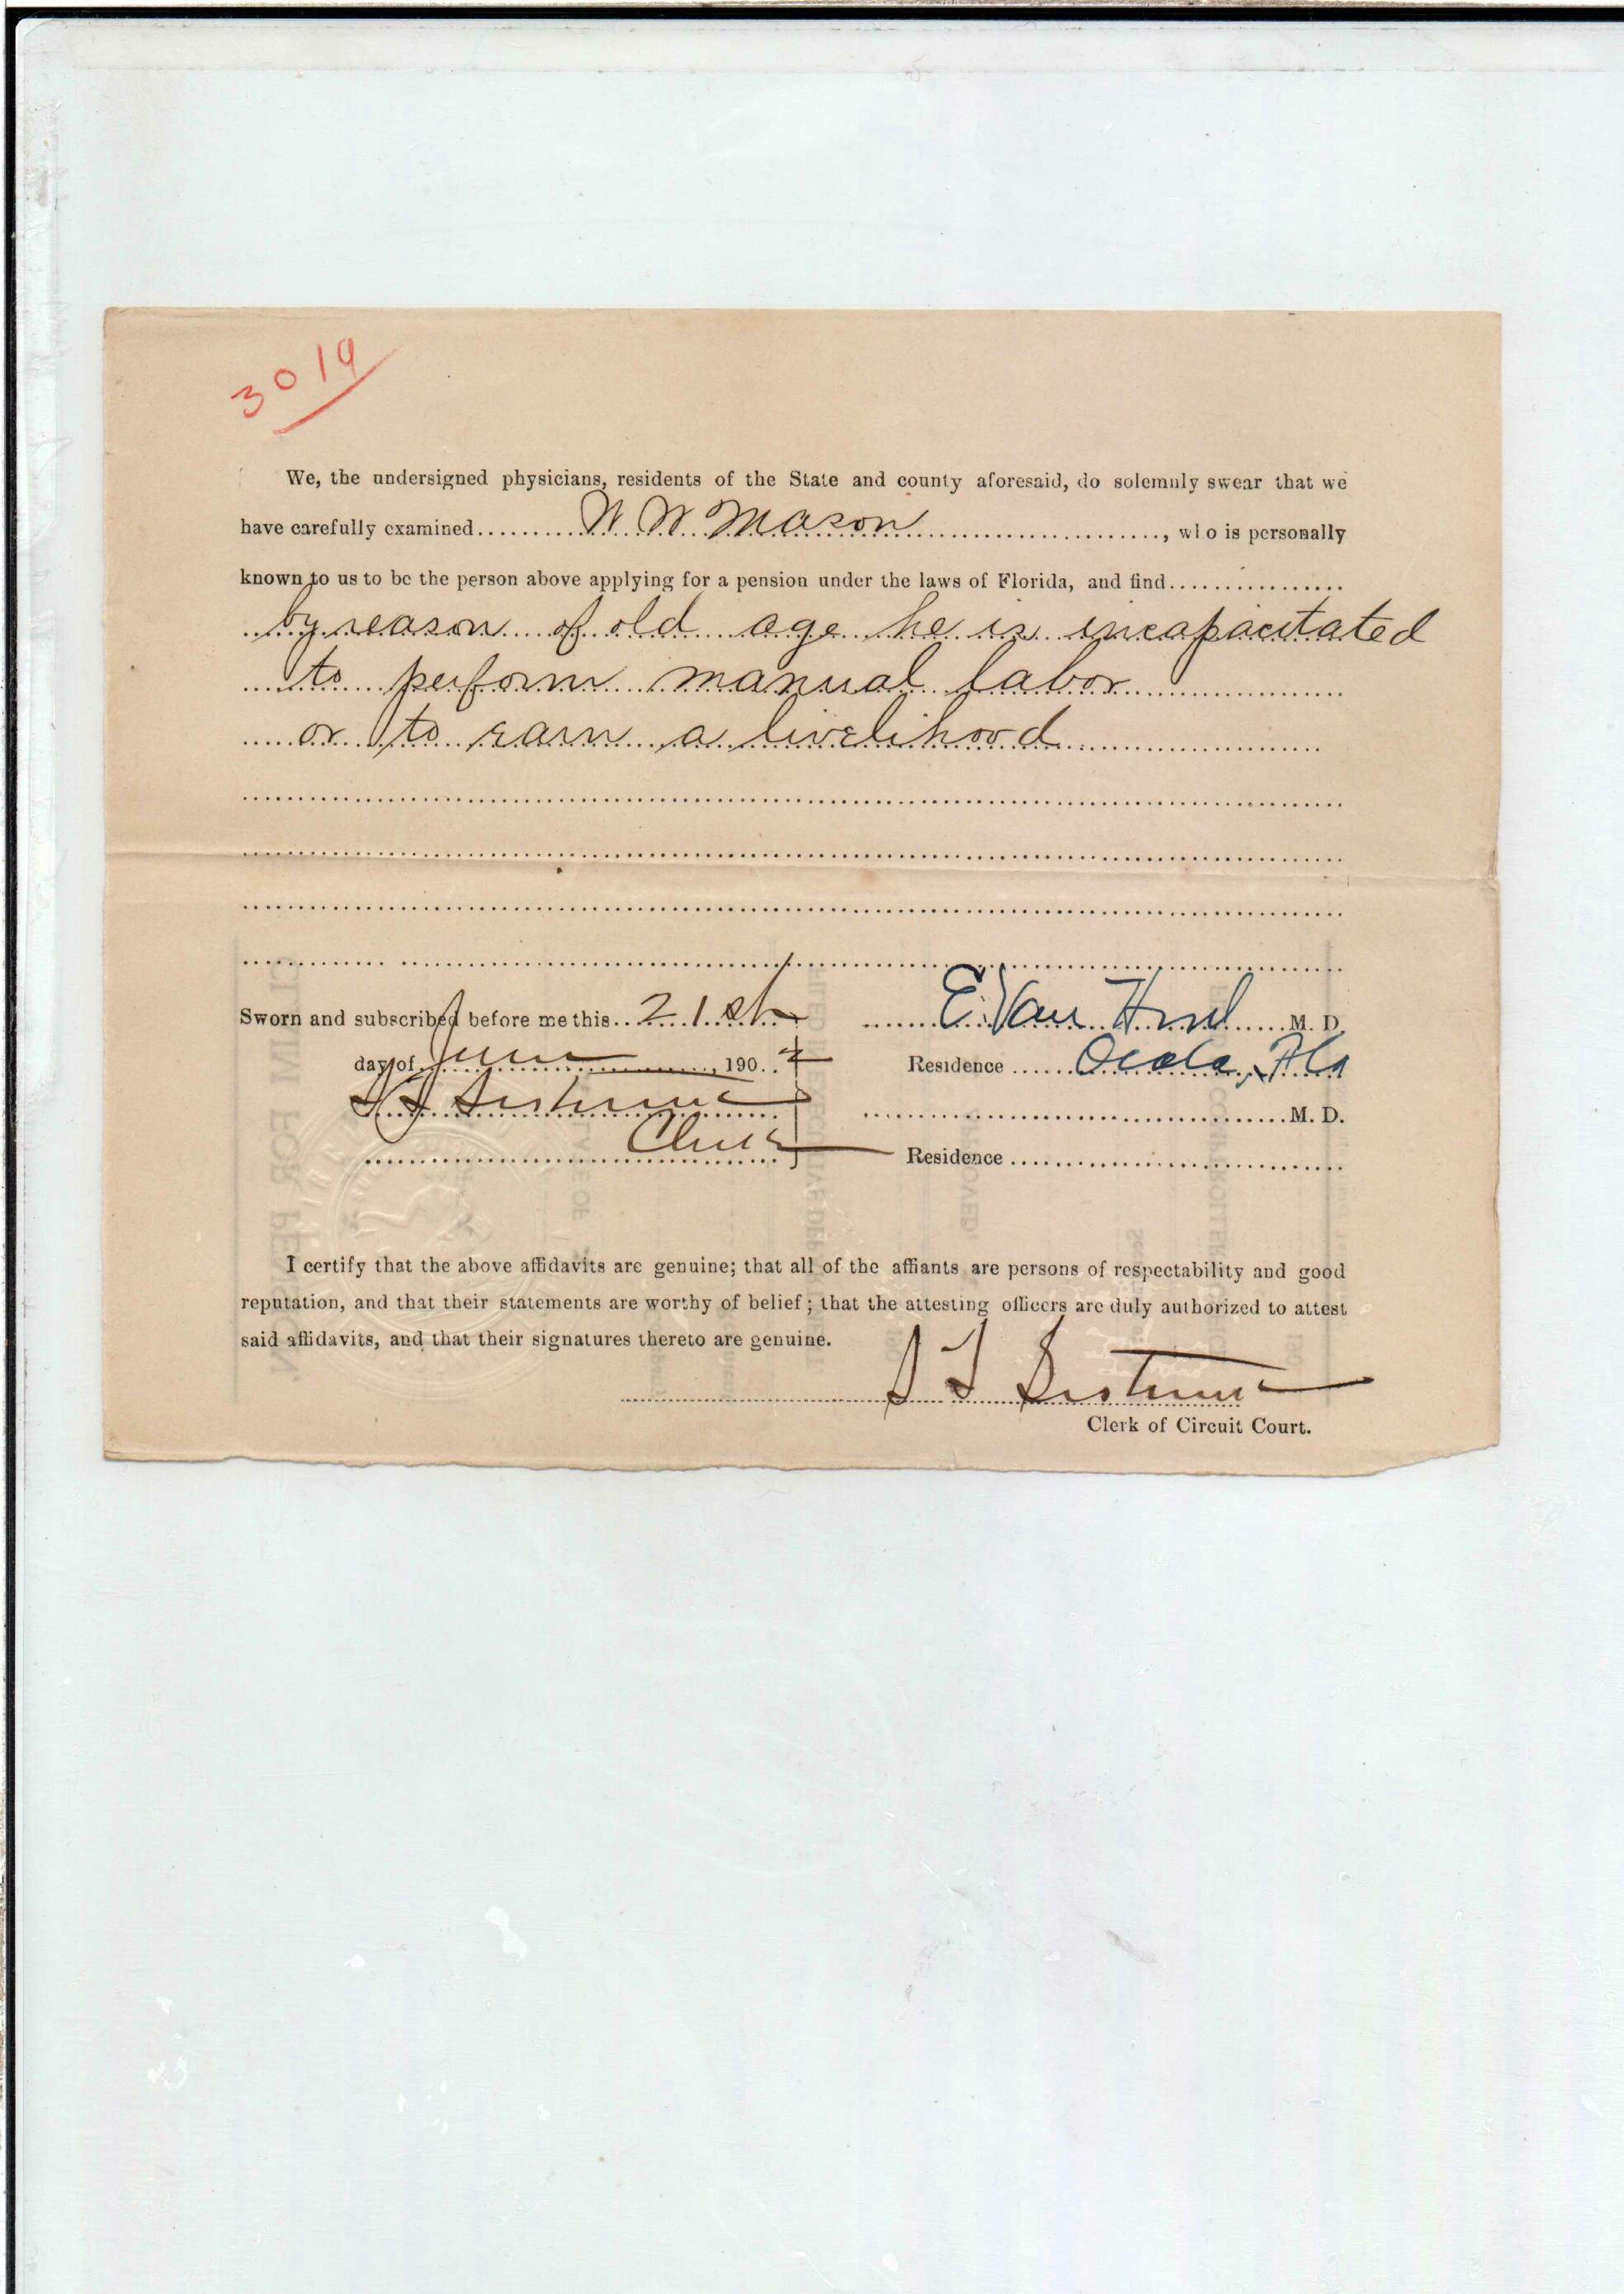 3019
We, the undersigned physicians, residents of the State and county aforesaid, do solemnly swear that we
have carefully examined W. W. Mason, who is personally
known to us to be the person above applying for a pension under the laws of Florida, and find
by reason of old age he is incapacitated
to perform manual labor
or to earn a livelihood
Sworn and subscribed before me this 21st E. Van Hood M. D.
day of June, 1907 Residence Ocala, Fla
S T Sistrunk M. D.
Clerk Residence
I certify that the above affidavits are genuine; that all of the affiants are persons of respectability and good
reputation, and that their statements are worthy of belief; that the attesting officers are duly authorized to attest
said affidavits, and that their signatures thereto are genuine.
S T Sistrunk
Clerk of Circuit Court.